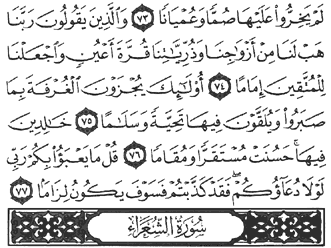 لَمْ يَخِرُّوا۟ عَلَيْهَا صُمًّا وَعُمْيَانًا ٧٣ وَٱلَّذِينَ يَقُولُونَ رَبَّنَا
هَبْ لَنَا مِنْ أَزْوَٰجِنَا وَذُرِّيَّٰتِنَا قُرَّةَ أَعْيُنٍ وَٱجْعَلْنَا
لِلْمُتَّقِينَ إِمَامًا ٧٤ أُو۟لَٰٓئِكَ يُجْزَوْنَ ٱلْغُرْفَةَ بِمَا
صَبَرُوا۟ وَيُلَقَّوْنَ فِيهَا تَحِيَّةً وَسَلَٰمًا ٧٥ خَٰلِدِينَ
فِيهَا ۚ حَسُنَتْ مُسْتَقَرًّا وَمُقَامًا ٧٦ قُلْ مَا يَعْبَؤُا۟ بِكُمْ رَبِّى
لَوْلَا دُعَآؤُكُمْ ۖ فَقَدْ كَذَّبْتُمْ فَسَوْفَ يَكُونُ لِزَامًا ٧٧
سُورَةُ الشُّعَرَاءِ